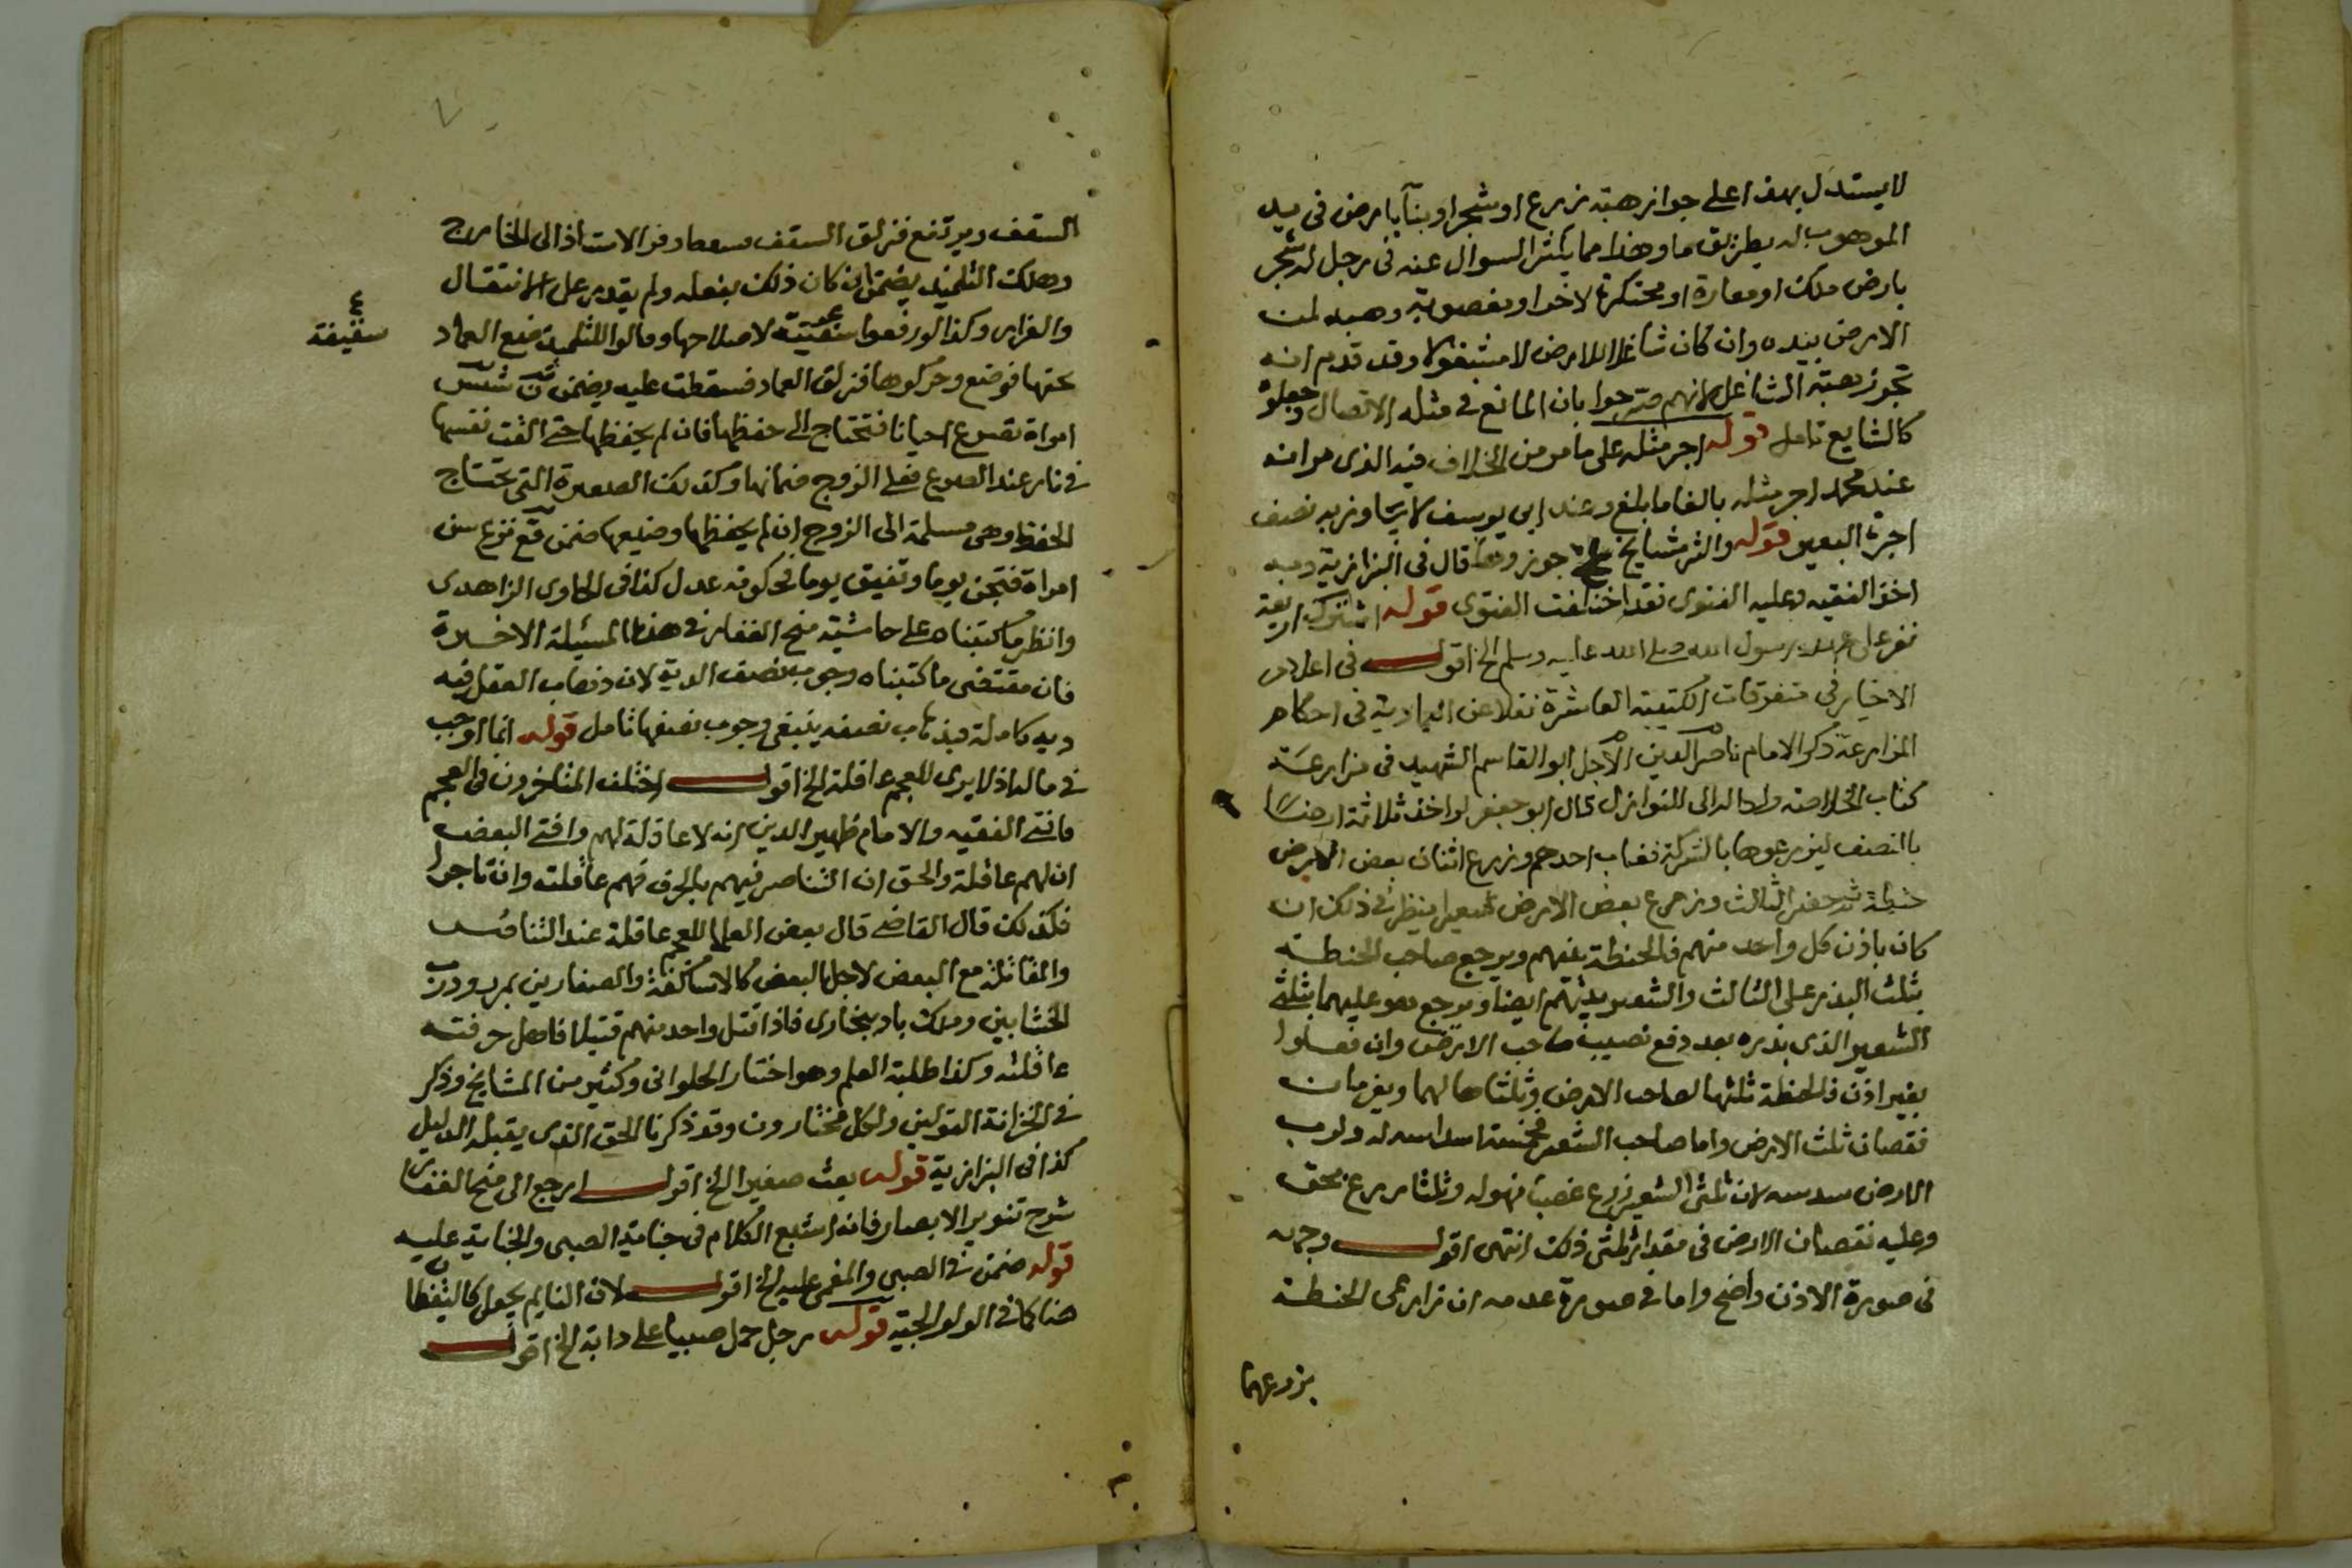 لا يستدل بهذا على جواز هبة زرع او شجر او بناء بارض فى يد
الموهوب له بطريق ما وهذا مما يكثر السوال عنه فى رجل له شجر
بارض ملك او معارة او محتكرة لاخر او مغصوبة وهبه لمن
الارض بيده وان كان شاغلا للارض لا مشغولا وقد قدم انه
تجوز هبة الشاغل لانهم صرحوا بان المانع فى مثله الاتصال وجعلوه
كالشايع تامل قوله اجر مثله على ما مر من الخلاف فيه الذى مر انه
عند محمد اجر مثله بالغا ما بلغ وعند ابى يوسف لا يتجاوز به نصف
اجرة البعير قوله واكثر مشايخ جوزوها قال فى البزازية وبه
اخذ الفقيه وعليه الفتوى فقد اختلفت الفتوى قوله اشترك اربعة
نفر على عهد رسول الله صلى الله عليه وسلم الخ اقول فى
الاخيار فى متفرقات الكتيبة العاشرة نقلا عن العمادية فى احكام
المزارعة ذكر الامام ناصر الدين الاجل ابو القاسم الشهيد فى مزارعة
كتاب الخلاصة الى النوازل قال ابو جعفر لو اخذ ثلاثة ارضا
بالنصف ليزرعوها بالشركة فغاب احدهم وزرع اثنان بعض الارض
حنطة ثم حضر الثالث وزرع بعض الارض شعيرا ينظر فى ذلك ان
كان باذن كل واحد منهم فالحنطة بينهم ويرجع صاحب الحنطة
بثلث البذر على الثالث والشعير بينهم ايضا ويرجع هو عليهما بثلثى
الشعير الذى بذره بعد دفع نصيب صاحب الارض وان فعلوا
بغير اذن فالحنطة ثلثها لصاحب الارض وثلثاها لهما ويغرمان
نقصان ثلث الارض واما صاحب الشعير فخمسة اسداسه له ولرب
الارض سدسه لان ثلثى الشعير زرع غصبا فهو له وثلثا زرع بحق
وعليه نقصان الارض فى مقدار ثلثى ذلك انتهى اقول وجهه
فى صورة الاذن واضح واما فى صورة عدمه ان زارعى الحنطة
بزرعهما
السقف ويرتفع فزلق السقف وفر الاستاذ الى الخارج
وهلك التلميذ يضمن ان كان ذلك بفعله ولم يقدر على الانتقال
والفرار وكذا لو رفعوا سفينة لاصلاحها وقالوا للتلميذ ضع العماد
تحتها فوضع وحركوها فزلق العماد فسقطت عليه يضمن
امراة تصرع احيانا فتحتاج الى حفظها فان لم يحفظها حتى القت نفسها
فى نار عند الصرع فعلى الزوج ضمانها وكذلك الصغيرة التى تحتاج
الحفظ وهى مسلمة الى الزوج ان لم يحفظها وضيعها ضمن قع نزع سن
امراة فتجن يوما وتفيق يوما فحكومة عدل كذا فى الحاوى الزاهدى
وانظر ما كتبناه على حاشية منح الغفار فى هذا المسيلة الاخيرة
فان مقتضى ما كتبناه وجوب نصف الدية لان ذهاب العقل فيه
دية كاملة فبذهاب نصفه ينبغى وجوب نصفها تامل قوله انما اوجب
فى ماله اذ لا يرى للعجم عاقلة الخ اقول اختلف المتاخرون فى العجم
فافتى الفقيه والامام ظهير الدين انه لا عاقلة لهم وافتى البعض
ان لهم عاقلة والحق ان التناصر فيهم بالحرف فهم عاقلته وان تاجروا
فكذلك قال القاضى قال بعض العلما للعجم عاقلة عند التناصر
والمقاتلة مع البعض لاجل البعض كالاساكفة والصفارين بمرو ودرب
الخشابين وكلاباد ببخارى فاذا قتل واحد منهم قتيلا فاهل حرفته
عاقلته وكذا طلبة العلم وهو اختيار الحلوانى وكثير من المشايخ وذكر
فى الخزانة القولين ولكل مختارون وقد ذكرنا الحق الذى يقبله الدليل
كذا فى البزازية قوله بعث صغيرا الخ اقول ارجع الى منح الغفار
شرح تنوير الابصار فانه اشبع الكلام فى جناية الصبى والجناية عليه
قوله ضمن فى الصبى والمغمى عليه الخ اقول لان النايم يجعل كاليقظان
هنا كما فى الولوالجية قوله رجل حمل صبيا على دابة الخ اقول
ع
سفينة